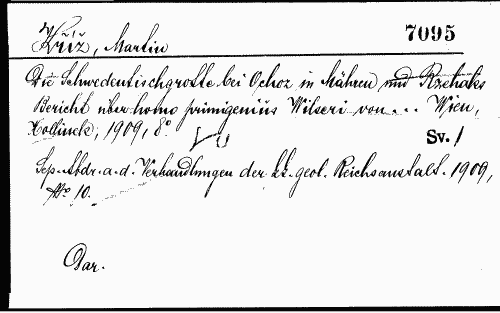 Kříž, Martin
7095
Die Schwedentischgrotte bei Ochoz in Mähren und Rzehaks
Bericht über homo primigenius Wilseri von ... Wien,
Hollinek, 1909, 8°
Sv. 1
Sep.-Abdr. a. d. Verhandlungen der k.k. geol. Reichsanstalt. 1909,
No 10.
Dar.